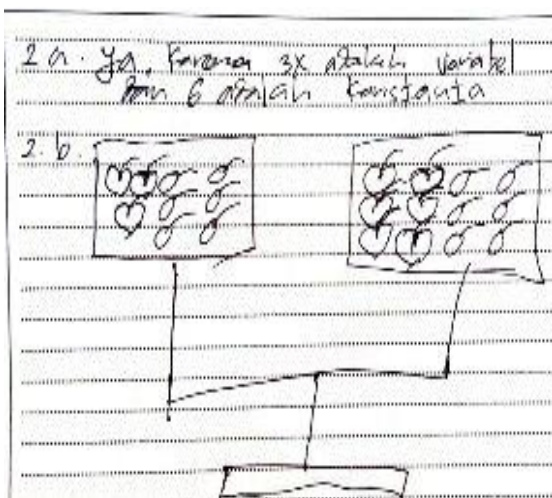 2 a. ya, karena 3x adalah variabel
dan 6 adalah konstanta
2. b.